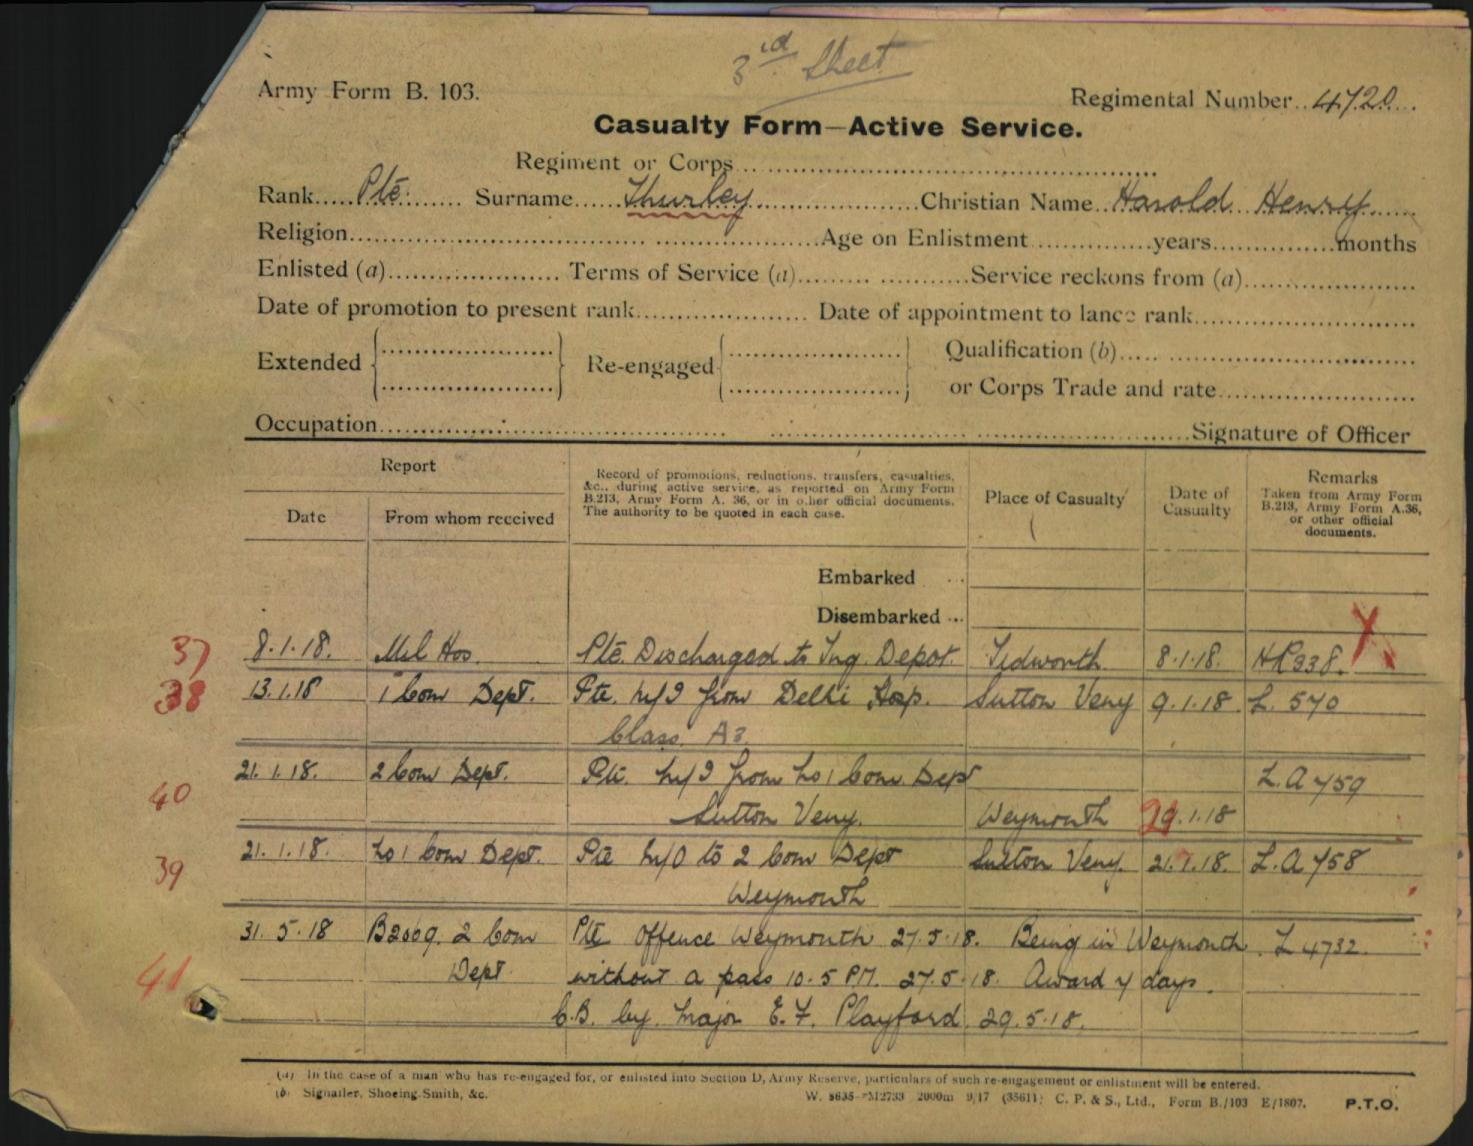 3rd Sheet
Army Form B. 103.
Regimental Number.. 4720...
Casualty Form—Active Service.
Regiment or Corps
Rank..... Pte. Surname..... Thurley Christian Name.. Harold Henry
Religion Age on Enlistment years months
Enlisted (a) Terms of Service (a) Service reckons from (a)
Date of promotion to present rank Date of appointment to lance rank
Extended Re-engaged Qualification (b)
or Corps Trade and rate
Occupation Signature of Officer
Report
Date
From whom received
Record of promotions, reductions, transfers, casualties,
&c., during active service, as reported on Army Form
B.213, Army Form A. 36, or in other official documents.
The authority to be quoted in each case.
Place of Casualty
Date of
Casualty
Remarks
Taken from Army Form
B.213, Army Form A.36,
or other official
documents.
Embarked ...
Disembarked ...
37 8.1.18. Mil Hos. Pte. Discharged to Trg. Depot. Tidworth 8.1.18. X
38 13.1.18 1 Com Dept. Pte. M/I from Delhi Hosp. Sutton Veny 9.1.18. L. 570
Class A3
40 21.1.18. 2 Com Dept. Pte. M/I from No 1 Com. Dept L.A 759
Sutton Veny. Weymouth .1.18
39 21.1.18. No 1 Com Dept. Pte M/O to 2 Com Dept Sutton Veny. 21.1.18. L.A 758
Weymouth
41 31.5.18 B2009. 2 Com Pte Offence Weymouth 27.5.18. Being in Weymouth L 4732
Dept without a pass 10.5 PM. 27.5.18. Award 7 days.
C.B. by Major E. F. Playford 29.5.18.
(a) In the case of a man who has re-engaged for, or enlisted into Section D, Army Reserve, particulars of such re-engagement or enlistment will be entered.
(b) Signaller, Shoeing-Smith, &c.
W. 8635—M2733 2000m 9/17 (35611) C. P. & S., Ltd., Form B./103 E/1807.
P.T.O.